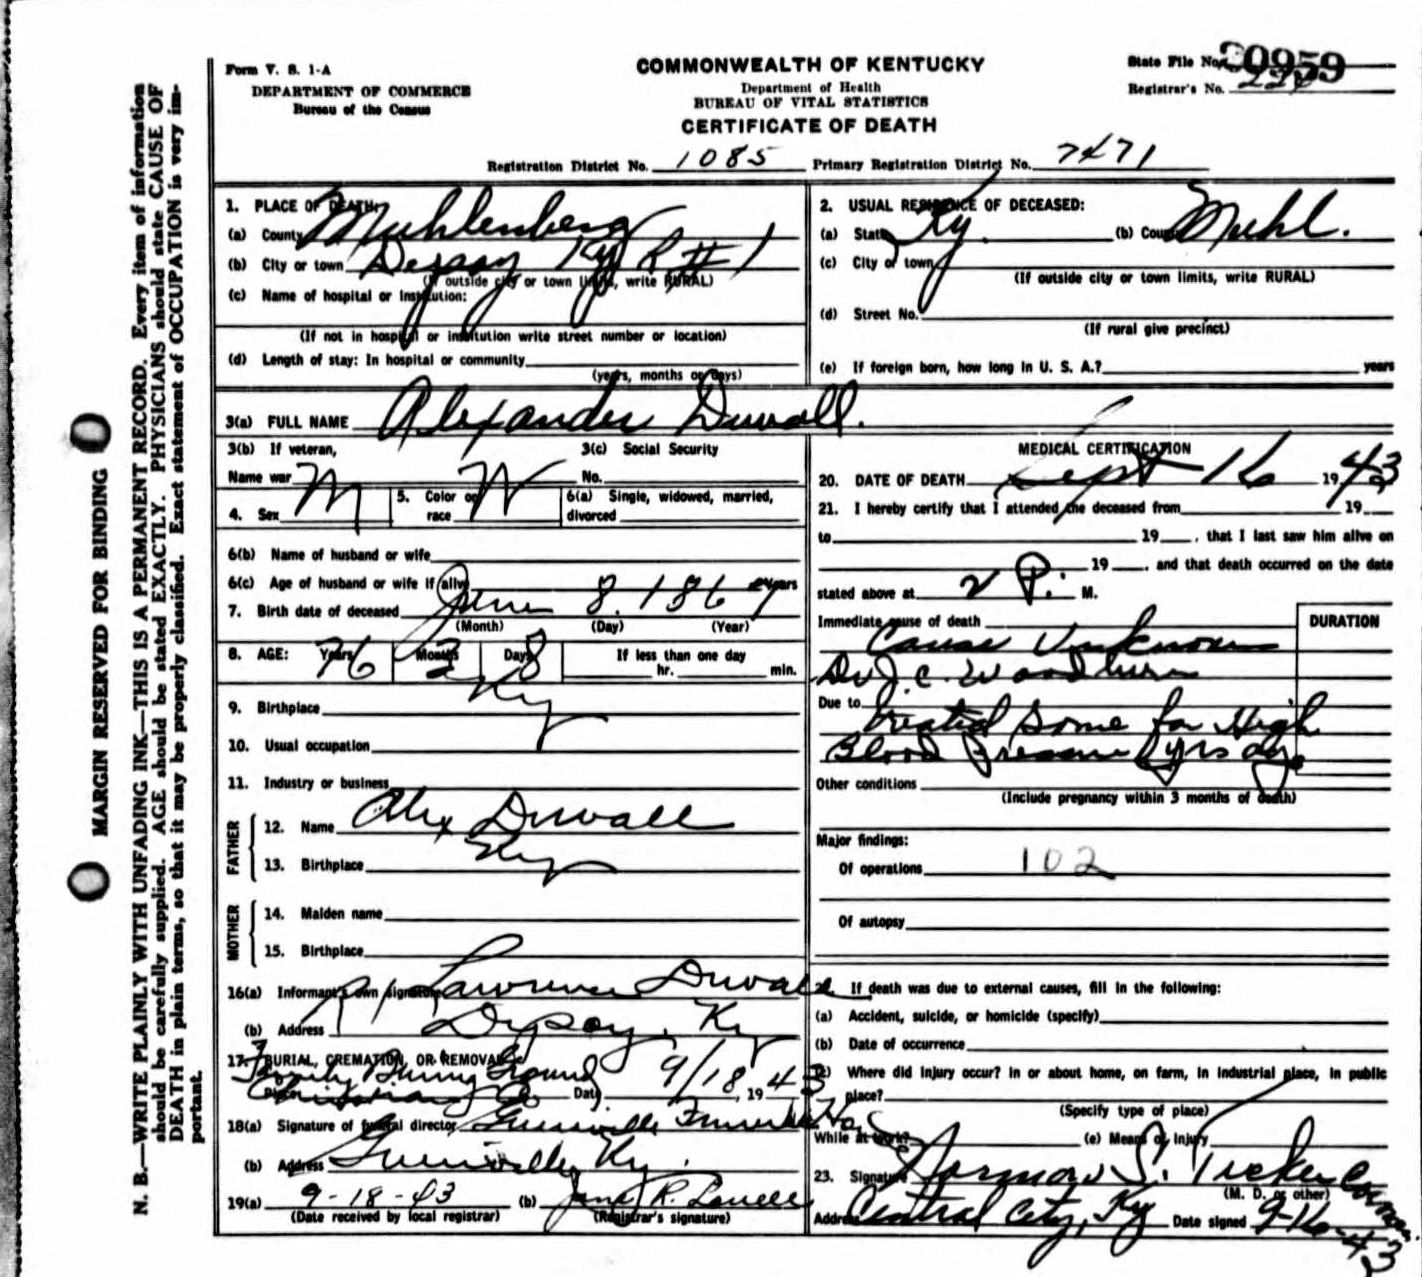 Form V. S. 1-A
DEPARTMENT OF COMMERCE
Bureau of the Census
COMMONWEALTH OF KENTUCKY
Department of Health
BUREAU OF VITAL STATISTICS
CERTIFICATE OF DEATH
State File No. 20959
Registrar's No.
Registration District No. 1085 Primary Registration District No. 7471
MARGIN RESERVED FOR BINDING
N. B.—WRITE PLAINLY WITH UNFADING INK—THIS IS A PERMANENT RECORD. Every item of information
should be carefully supplied. AGE should be stated EXACTLY. PHYSICIANS should state CAUSE OF
DEATH in plain terms, so that it may be properly classified. Exact statement of OCCUPATION is very im-
portant.
1. PLACE OF DEATH:
(a) County Muhlenberg
(b) City or town Depoy Ky R#1
(If outside city or town limits, write RURAL)
(c) Name of hospital or institution:
(If not in hospital or institution write street number or location)
(d) Length of stay: In hospital or community
(years, months or days)
2. USUAL RESIDENCE OF DECEASED:
(a) State Ky. (b) County Muhl.
(c) City or town
(If outside city or town limits, write RURAL)
(d) Street No.
(If rural give precinct)
(e) If foreign born, how long in U. S. A.? years
3(a) FULL NAME Alexander Duvall.
3(b) If veteran, 3(c) Social Security
Name war No.
4. Sex M 5. Color or race W 6(a) Single, widowed, married, divorced
6(b) Name of husband or wife
6(c) Age of husband or wife if alive years
7. Birth date of deceased June 8. 1867
(Month) (Day) (Year)
8. AGE: Years 76 Months 3 Days 8 If less than one day
hr. min.
9. Birthplace Ky
10. Usual occupation
11. Industry or business
FATHER
12. Name Alex Duvall
13. Birthplace Ky
MOTHER
14. Maiden name
15. Birthplace
16(a) Informant's own signature Lawrence Duvall
(b) Address R1 Depoy, Ky
17. BURIAL, CREMATION, OR REMOVAL
Family Burying Ground
Place Christian Co Date 9/18, 1943
18(a) Signature of funeral director Greenville Funeral Ho
(b) Address Greenville, Ky.
19(a) 9-18-43 (b) Jane R. Lovell
(Date received by local registrar) (Registrar's signature)
MEDICAL CERTIFICATION
20. DATE OF DEATH Sept 16 1943
21. I hereby certify that I attended the deceased from 19
to 19 , that I last saw him alive on
19 , and that death occurred on the date
stated above at 2 P. M.
Immediate cause of death
DURATION
Cause Unknown
Dr J. C. Woodburn
Due to treated some for High
Blood Pressure 2 yrs ago
Other conditions
(Include pregnancy within 3 months of death)
Major findings:
Of operations 102
Of autopsy
22. If death was due to external causes, fill in the following:
(a) Accident, suicide, or homicide (specify)
(b) Date of occurrence
(c) Where did injury occur? In or about home, on farm, in industrial place, in public
place?
(Specify type of place)
While at work? (e) Means of Injury
23. Signature Norman S. Tucker Coroner.
(M. D. or other)
Address Central City, Ky Date signed 9-16-43